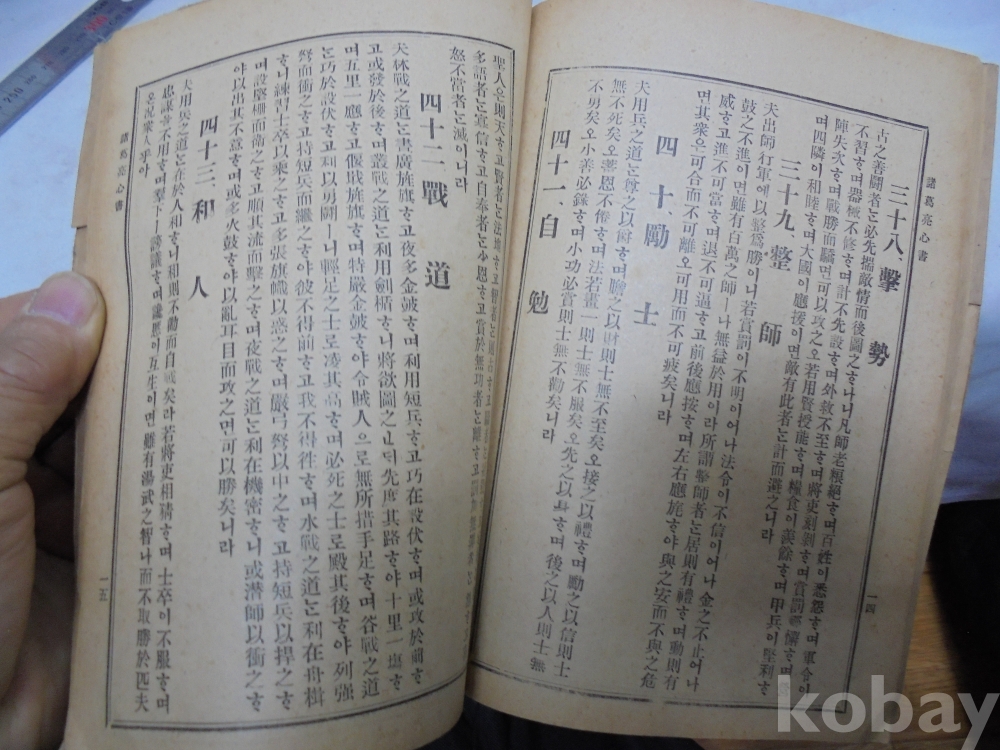 諸葛亮心書
三十八、擊勢
古之善鬪者ᄂᆞᆫ必先揣敵情而後圖之ᄒᆞᄂᆞ니凡師老粮絕ᄒᆞ며百姓이愁怨ᄒᆞ며軍令이
不習ᄒᆞ며器械不修ᄒᆞ며計不先設ᄒᆞ며外救不至ᄒᆞ며將吏刻剝ᄒᆞ며賞罰輕懈ᄒᆞ며
陣失次ᄒᆞ며戰勝而驕면可以攻之오若用賢授能ᄒᆞ며糧食이羨餘ᄒᆞ며甲兵이堅利ᄒᆞ
며四隣이和睦ᄒᆞ며大國이應援이면敵有此者ᄂᆞᆫ計而避之니라
三十九、整師
夫出師行軍에以整爲勝이니若賞罰이不明이어나法令이不信이어나金之不止어나
鼓之不進이면雖有百萬之師ㅣ나無益於用이라所謂整師者ᄂᆞᆫ居則有禮ᄒᆞ며動則有
威ᄒᆞ고進不可當ᄒᆞ며退不可逼ᄒᆞ고前後應接ᄒᆞ며左右應旄ᄒᆞ야與之安而不與之危
면其衆은可合而不可離오可用而不可疲矣니라
四十、勵士
夫用兵之道ᄂᆞᆫ尊之以爵ᄒᆞ며贍之以財則士無不至矣오接之以禮ᄒᆞ며勵之以信則士
無不死矣오蓄恩不倦ᄒᆞ며法若畫一則士無不服矣오先之以身ᄒᆞ며後之以人則士無
不勇矣오小善必錄ᄒᆞ며小功必賞則士無不勸矣니라
四十一、自勉
一四
聖人은則天ᄒᆞ고賢者ᄂᆞᆫ法地ᄒᆞ고智者ᄂᆞᆫ
多語者ᄂᆞᆫ寡信ᄒᆞ고自奉者ᄂᆞᆫ少恩ᄒᆞ고賞於無功者ᄂᆞᆫ離ᄒᆞ고
怒不當者ᄂᆞᆫ滅이니라
四十二、戰道
夫林戰之道ᄂᆞᆫ晝廣旌旗ᄒᆞ고夜多金皷ᄒᆞ며利用短兵ᄒᆞ고巧在設伏ᄒᆞ며或攻於前ᄒᆞ
고或發於後ᄒᆞ며叢戰之道ᄂᆞᆫ利用劍楯ᄒᆞ니將欲圖之ᄂᆞᆫ딘先度其路ᄒᆞ야十里一塲ᄒᆞ
며五里一應ᄒᆞ고偃戢旌旗ᄒᆞ며特嚴金皷ᄒᆞ야令賊人으로無所措手足ᄒᆞ며谷戰之道
ᄂᆞᆫ巧於設伏ᄒᆞ고利以勇鬪ㅣ니輕足之士로凌其高ᄒᆞ며必死之士로殿其後ᄒᆞ야列强
弩而衝之ᄒᆞ고持短兵而繼之ᄒᆞ야彼不得前ᄒᆞ고我不得徃ᄒᆞ며水戰之道ᄂᆞᆫ利在舟楫
ᄒᆞ니練習士卒以乘之ᄒᆞ고多張旗幟以惑之ᄒᆞ며嚴弓弩以中之ᄒᆞ고持短兵以捍之ᄒᆞ
며設堅栅而衛之ᄒᆞ고順其流而擊之ᄒᆞ며夜戰之道ᄂᆞᆫ利在機密ᄒᆞ니或潛師以衝之ᄒᆞ
야以出其不意ᄒᆞ며或多火鼓ᄒᆞ야以亂耳目而攻之면可以勝矣니라
四十三、和人
夫用兵之道ᄂᆞᆫ在於人和ᄒᆞ니和則不勸而自戰矣라若將吏相猜ᄒᆞ며士卒이不服ᄒᆞ며
忠謀를不用ᄒᆞ며羣下ㅣ謗議ᄒᆞ며讒慝이互生이면雖有湯武之智나而不取勝於匹夫
온況衆人乎아
諸葛亮心書
一五
kobay